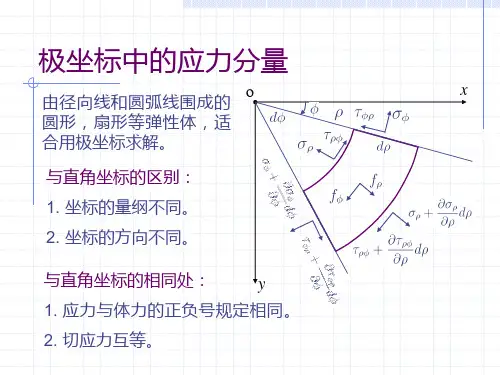 极坐标中的应力分量
由径向线和圆弧线围成的
圆形，扇形等弹性体，适
合用极坐标求解。
与直角坐标的区别：
1. 坐标的量纲不同。
2. 坐标的方向不同。
与直角坐标的相同处：
1. 应力与体力的正负号规定相同。
2. 切应力互等。
o
x
y
dϕ
ϕ
ρ
τϕρ
σϕ
τρϕ
σρ
dρ
fϕ
fρ
σρ + ∂σρ/∂ρ dρ
τρϕ + ∂τρϕ/∂ρ dρ
σϕ + ∂σϕ/∂ϕ dϕ
τϕρ + ∂τϕρ/∂ϕ dϕ